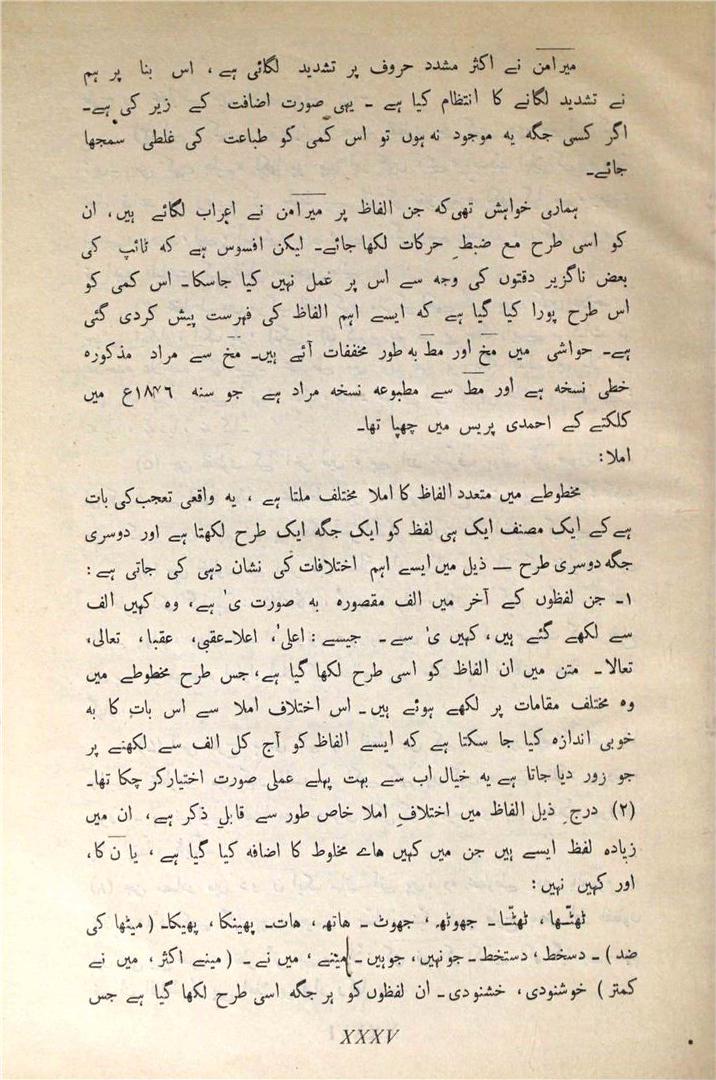 میر امن نے اکثر مشدد حروف پر تشدید لگائی ہے، اس بنا پر ہم
نے تشدید لگانے کا انتظام کیا ہے ۔ یہی صورت اضافت کے زیر کی ہے۔
اگر کسی جگہ یہ موجود نہ ہوں تو اس کمی کو طباعت کی غلطی سمجھا
جائے۔
ہماری خواہش تھی کہ جن الفاظ پر میر امن نے اعراب لگائے ہیں، ان
کو اسی طرح مع ضبطِ حرکات لکھا جائے۔ لیکن افسوس ہے کہ ٹائپ کی
بعض ناگزیر دقتوں کی وجہ سے اس پر عمل نہیں کیا جاسکا۔ اس کمی کو
اس طرح پورا کیا گیا ہے کہ ایسے اہم الفاظ کی فہرست پیش کردی گئی
ہے۔ حواشی میں مخ اور مط بہ طور مخففات آئے ہیں۔ مخ سے مراد مذکورہ
خطی نسخہ ہے اور مط سے مطبوعہ نسخہ مراد ہے جو سنہ ۱۸۴۶ع میں
کلکتے کے احمدی پریس میں چھپا تھا۔
املا:
مخطوطے میں متعدد الفاظ کا املا مختلف ملتا ہے، یہ واقعی تعجب کی بات
ہے کے ایک مصنف ایک ہی لفظ کو ایک جگہ ایک طرح لکھتا ہے اور دوسری
جگہ دوسری طرح — ذیل میں ایسے اہم اختلافات کی نشان دہی کی جاتی ہے:
۱۔ جن لفظوں کے آخر میں الف مقصورہ بہ صورت یٰ ہے، وہ کہیں الف
سے لکھے گئے ہیں، کہیں یٰ سے۔ جیسے: اعلیٰ، اعلا۔عقبی، عقبا، تعالی،
تعالا۔ متن میں ان الفاظ کو اسی طرح لکھا گیا ہے، جس طرح مخطوطے میں
وہ مختلف مقامات پر لکھے ہوئے ہیں۔ اس اختلاف املا سے اس بات کا بہ
خوبی اندازہ کیا جا سکتا ہے کہ ایسے الفاظ کو آج کل الف سے لکھنے پر
جو زور دیا جاتا ہے یہ خیال اب سے بہت پہلے عملی صورت اختیار کر چکا تھا۔
(۲) درجِ ذیل الفاظ میں اختلافِ املا خاص طور سے قابلِ ذکر ہے، ان میں
زیادہ لفظ ایسے ہیں جن میں کہیں ھاے مخلوط کا اضافہ کیا گیا ہے، یا ن کا،
اور کہیں نہیں:
ٹھٹّھا، ٹھٹّا۔ جھوٹھ، جھوٹ۔ ھاتھ، ھات۔ پھینکا، پھیکا۔ (میٹھا کی
ضد)۔ دسخط، دستخط۔ جونہیں، جوہیں۔ مینے، میں نے۔ (مینے اکثر، میں نے
کمتر) خوشنودی، خشنودی۔ ان لفظوں کو ہر جگہ اسی طرح لکھا گیا ہے جس
XXXV